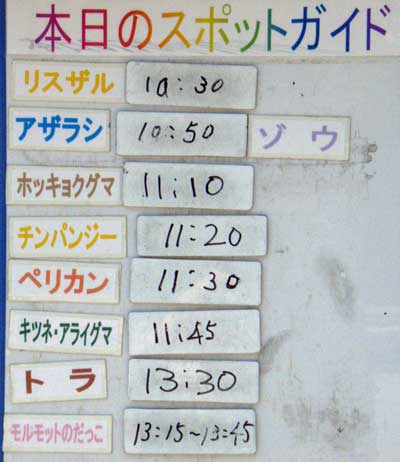 本日のスポットガイド
リスザル 10:30
アザラシ 10:50 ゾウ
ホッキョクグマ 11:10
チンパンジー 11:20
ペリカン 11:30
キツネ・アライグマ 11:45
トラ 13:30
モルモットのだっこ 13:15~13:45